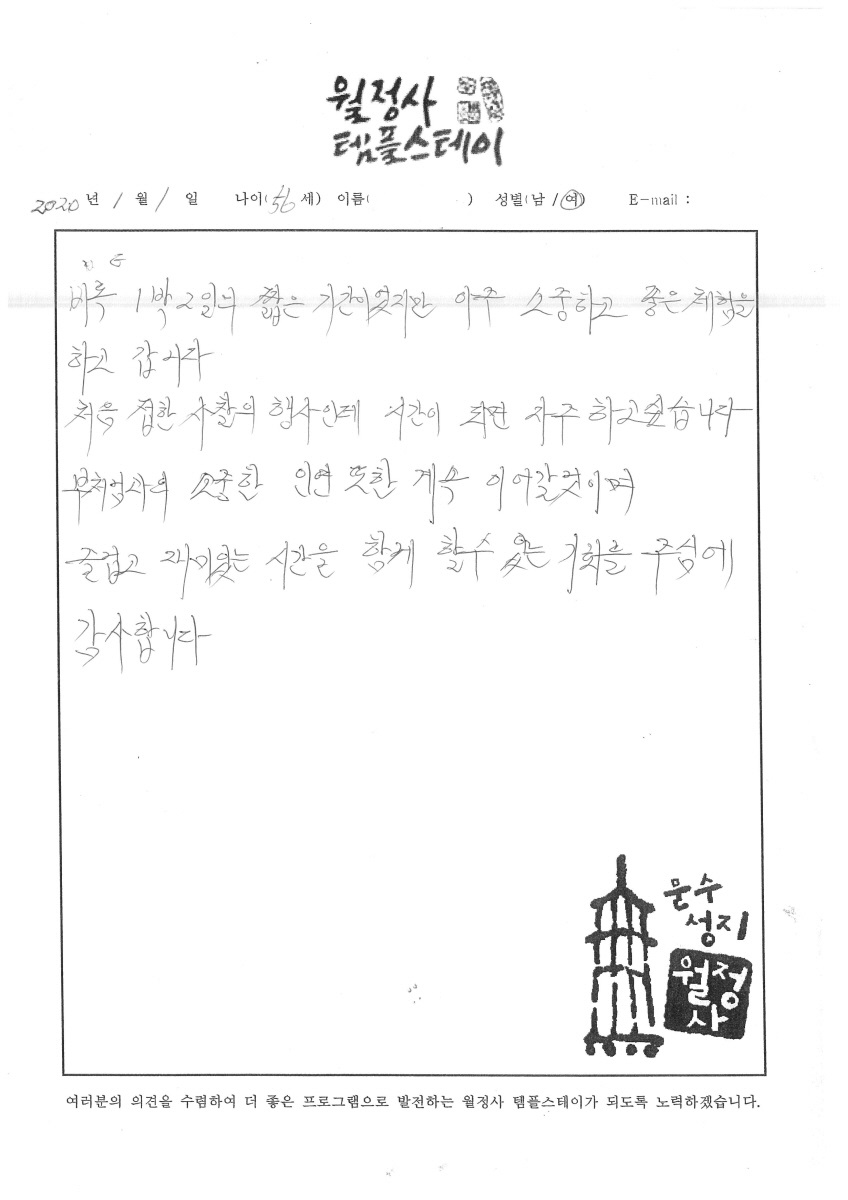 월정사
템플스테이
2020년 1월 1일 나이(56세) 이름( ) 성별(남/여) E-mail :
비록 1박2일의 짧은 기간이었지만 아주 소중하고 좋은 체험을
하고 갑니다
처음 접한 사찰의 행사인데 시간이 되면 자주 하고싶습니다
부처님과의 소중한 인연 또한 계속 이어갈것이며
즐겁고 재미있는 시간을 함께 할수 있는 기회를 주심에
감사합니다
문수
성지
월정
사
여러분의 의견을 수렴하여 더 좋은 프로그램으로 발전하는 월정사 템플스테이가 되도록 노력하겠습니다.